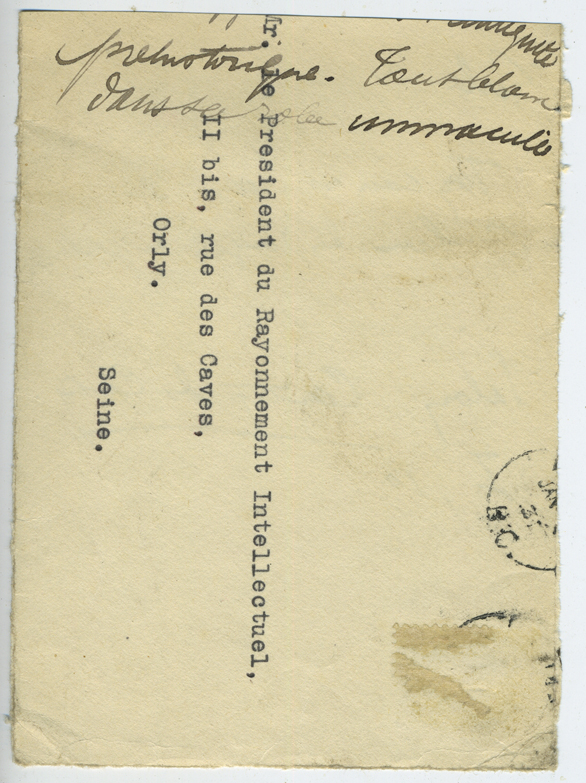 préhistorique. Tout blanc
dans sa robe immaculée
Mr. Le President du Rayonnement Intellectuel,
II bis, rue des Caves,
Orly.
Seine.
JAN
B.C.